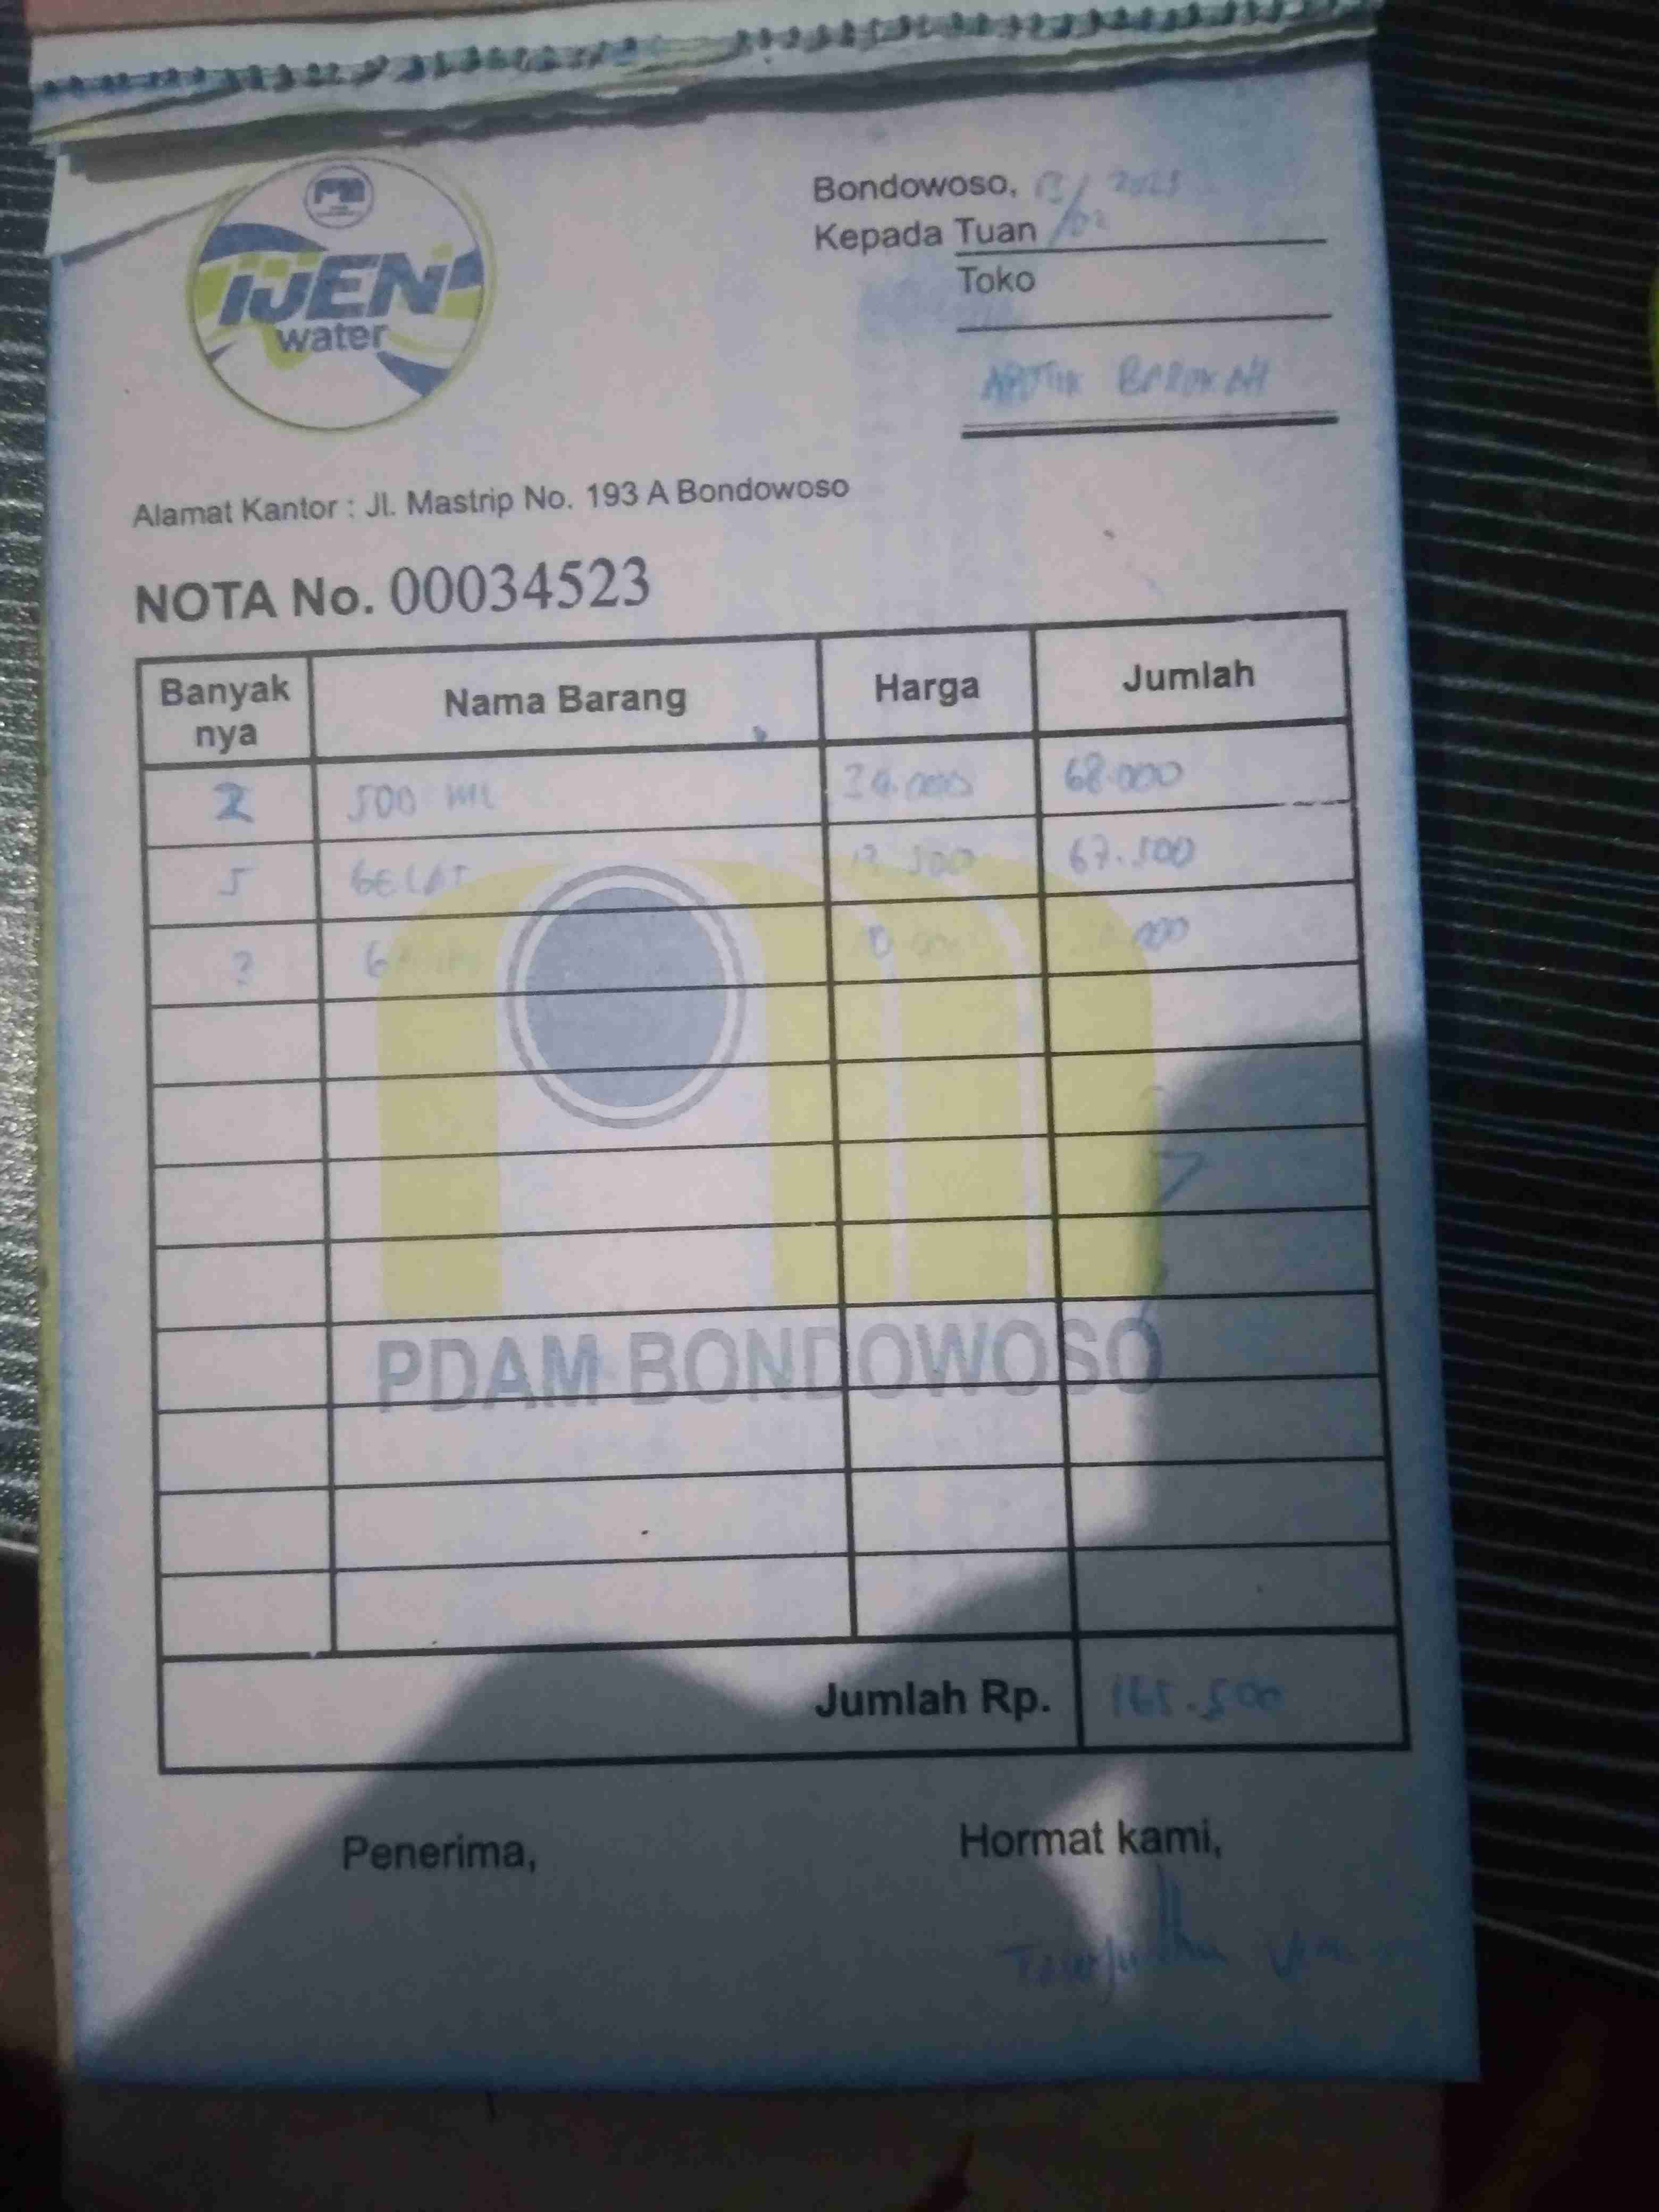 IJEN
water
Bondowoso, 13/02 2023
Kepada Tuan
Toko
APOTIK BAROKAH
Alamat Kantor : Jl. Mastrip No. 193 A Bondowoso
NOTA No. 00034523
Banyak nya Nama Barang Harga Jumlah
2 500 ML 34.000 68.000
5 GELAS 13.500 67.500
PDAM BONDOWOSO
Jumlah Rp. 165.500
Penerima, Hormat kami,